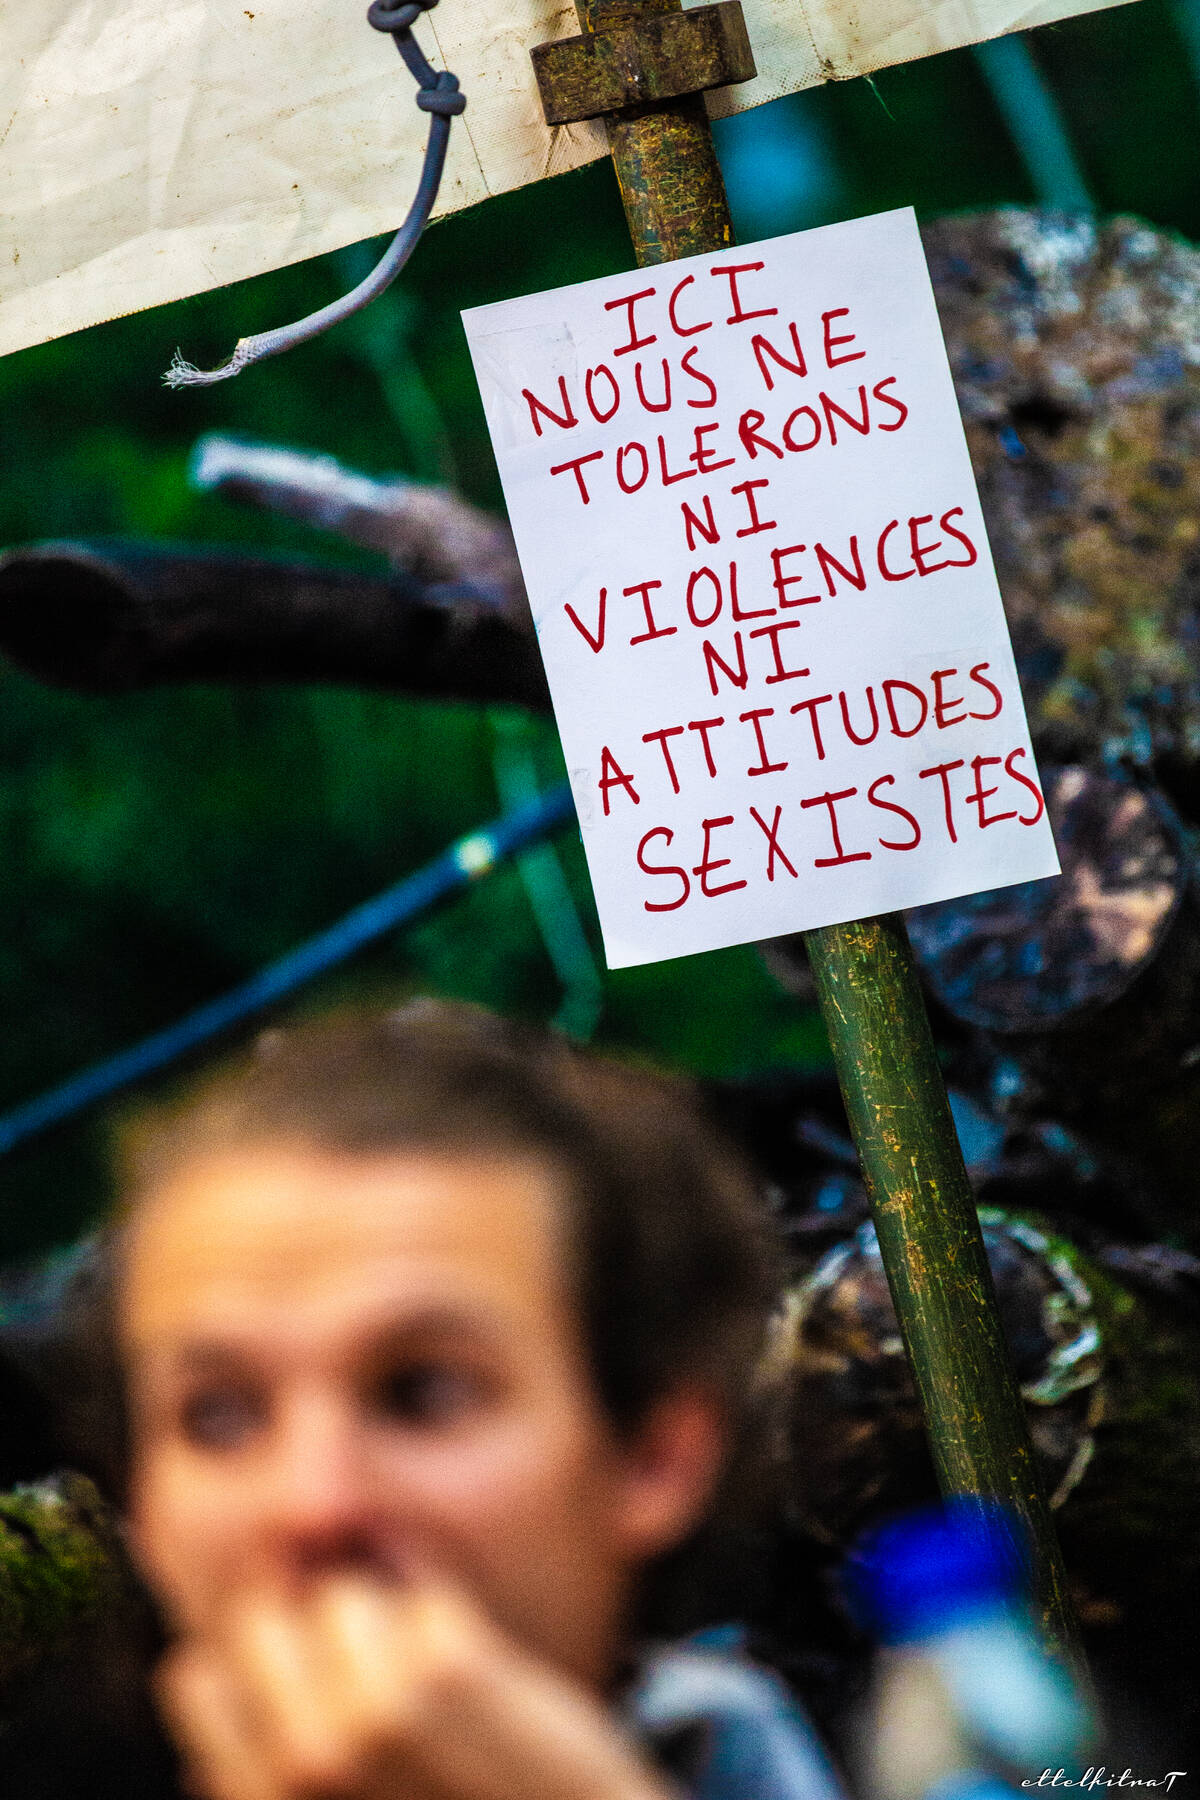 ICI
NOUS NE
TOLERONS
NI
VIOLENCES
NI
ATTITUDES
SEXISTES
ettelkitnaT